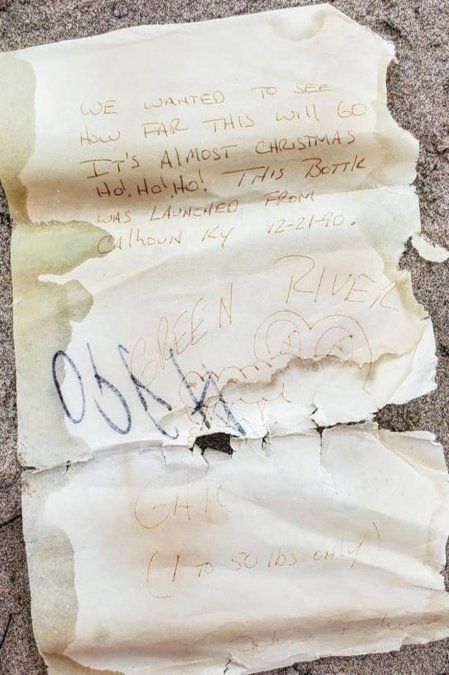 WE WANTED TO SEE
HOW FAR THIS WILL GO
IT'S ALMOST CHRISTMAS
HO! HO! HO! THIS BOTTLE
WAS LAUNCHED FROM
CALHOUN KY 12-21-90.
GREEN RIVER
(1 TO 50 lbs ONLY)